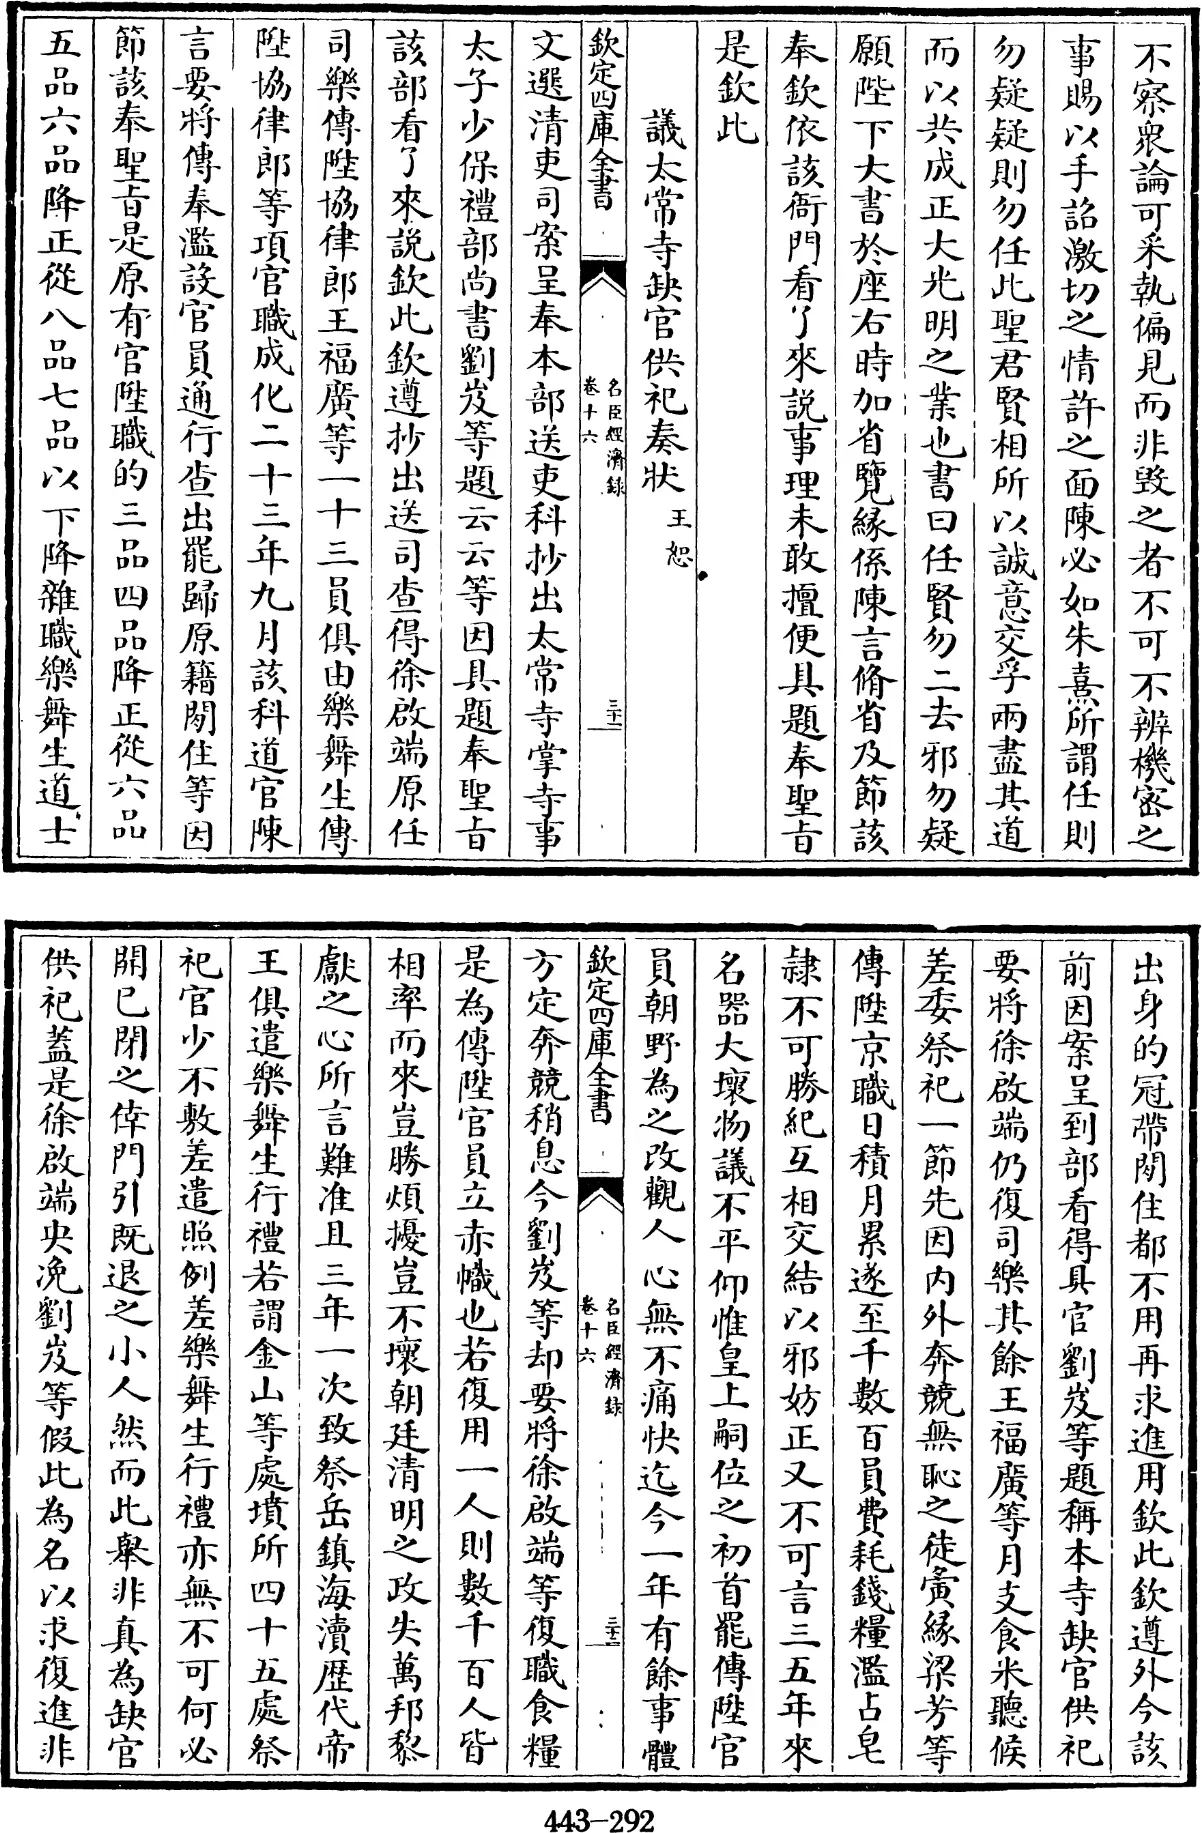 不察衆論可采執偏見而非毀之者不可不辨機密之
事賜以手詔激切之情許之面陳必如朱熹所謂任則
勿疑疑則勿任此聖君賢相所以誠意交孚兩盡其道
而以共成正大光明之業也書曰任賢勿二去邪勿疑
願陛下大書於座右時加省覽緣係陳言脩省及節該
奉欽依該衙門看了來說事理未敢擅便具題奉聖旨
是欽此
議太常寺缺官供祀奏狀 王恕
欽定四庫全書
名臣經濟録
卷十六
三十一
文選清吏司案呈奉本部送吏科抄出太常寺掌寺事
太子少保禮部尚書劉岌等題云云等因具題奉聖旨
該部看了來說欽此欽遵抄出送司查得徐啟端原任
司樂傳陞協律郎王福廣等一十三員俱由樂舞生傳
陞協律郎等項官職成化二十三年九月該科道官陳
言要將傳奉濫設官員通行查出罷歸原籍閒住等因
節該奉聖旨是原有官陞職的三品四品降正從六品
五品六品降正從八品七品以下降雜職樂舞生道士
出身的冠帶閒住都不用再求進用欽此欽遵外今該
前因案呈到部看得具官劉岌等題稱本寺缺官供祀
要將徐啟端仍復司樂其餘王福廣等月支食米聽候
差委祭祀一節先因内外奔競無恥之徒夤縁梁芳等
傳陞京職日積月累遂至千數百員費耗錢糧濫占皂
隸不可勝紀互相交結以邪妨正又不可言三五年來
名器大壞物議不平仰惟皇上嗣位之初首罷傳陞官
員朝野為之改觀人心無不痛快迄今一年有餘事體
欽定四庫全書
名臣經濟録
卷十六
三十二
方定奔競稍息今劉岌等却要將徐啟端等復職食糧
是為傳陞官員立赤幟也若復用一人則數千百人皆
相率而來豈勝煩擾豈不壞朝廷清明之政失萬邦黎
獻之心所言難准且三年一次致祭岳鎮海瀆歴代帝
王俱遣樂舞生行禮若謂金山等處墳所四十五處祭
祀官少不敷差遣照例差樂舞生行禮亦無不可何必
開已閉之倖門引既退之小人然而此舉非真為缺官
供祀蓋是徐啟端央浼劉岌等假此為名以求復進非
443-292